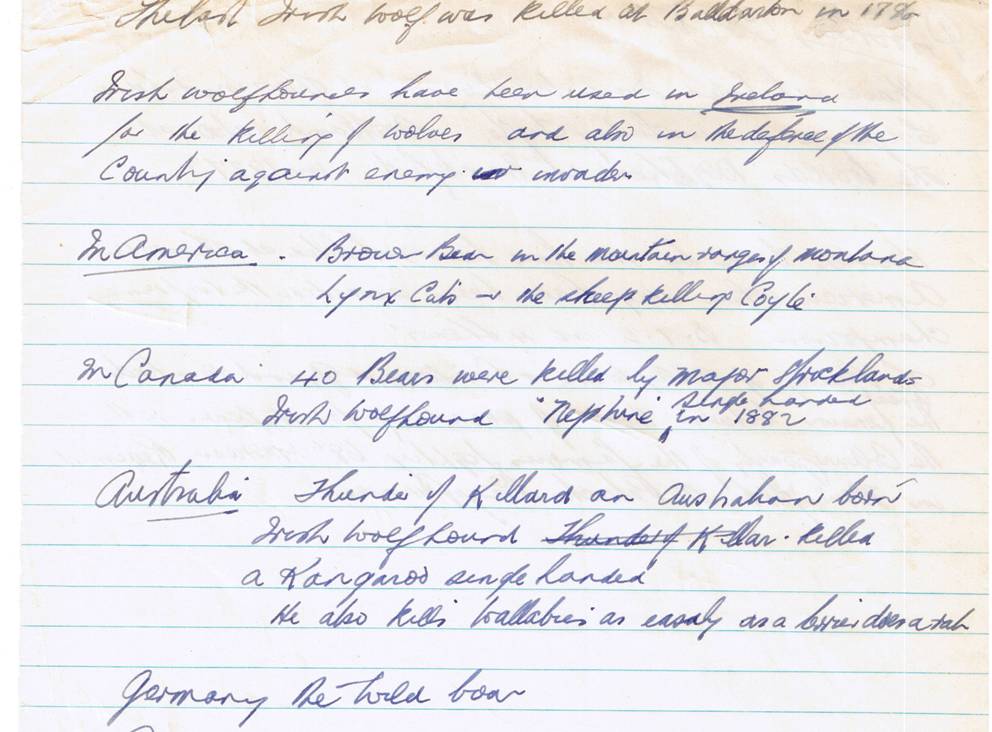 The last Irish Wolf was Killed at in 1786
Irish wolfhounds have been used in Ireland
for the Killing of wolves and also in the defence of the
County against enemy invaders
In America. Brown Bear in the mountain ranges of montana
Lynx Cats + the sheep Killing Coyle
In Canada 40 Bears were Killed by major Stricklands
Irish Wolfhound "Neptune" single handed in 1882
Australia Thunder of Killard an Australian born
Irish Wolfhound Thunder of Killar. Killed
a Kangaroo single handed
He also Kills Wallabies as easily as a terrier does a rat
Germany The Wild boar